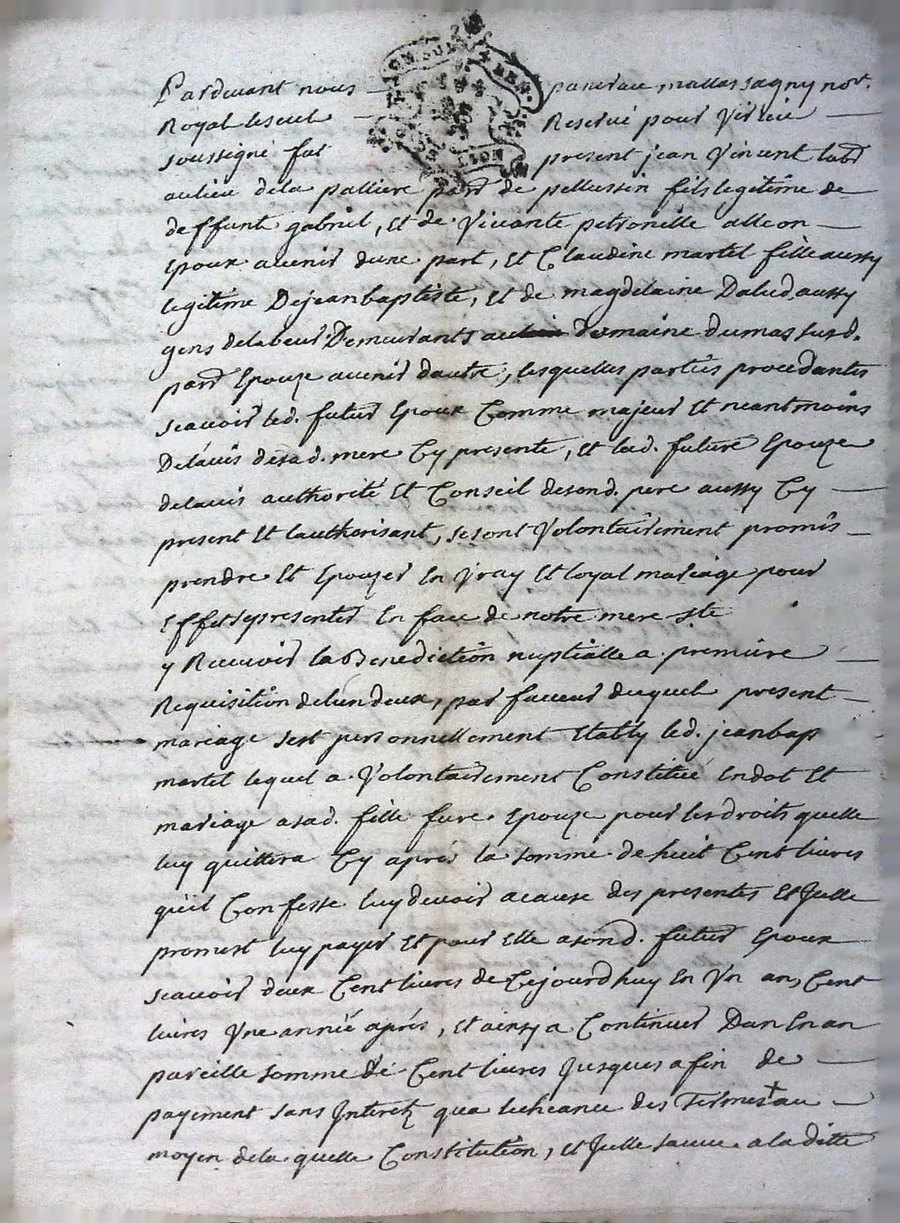 Pardevant nous pancrau mallassagny nore.
Royal lescul Reservé pour Virieu
soussigné fut present jean Vincent labr
au lieu dela palliere parr de pellussin fils legitime de
deffunt gabriel, Et de Vivante petronille alleon
Epoux avenir dune part, Et Claudine martel fille aussy
legitime De jean baptiste, Et de magdelaine Dalud aussy
gens delabeur Demeurants domaine dumas susd.
parr Epouze avenir dautre, lesquelles parties procedantes
scavoir led. futur Epoux Comme majeur Et neantmoins
Delavis desad. mere Cy presente, Et lad. future Epouze
delavis authorité Et Conseil desond. pere aussy Cy
present Et lauthorisant, se sont Volontairement promis
prendre Et Epouzer En Vray Et loyal mariage pour
Effet sy presenter En face de notre mere ste
y Recevoir la Benediction nuptialle a premiere
Requisition delun deux, par faveur duquel present
mariage sest personnellement Etably led. jean bap
martel lequel a Volontairement Constitué En dot Et
mariage asad. fille fure. Epouze pour les droits quelle
luy quittera Cy aprés la somme de huit Cent livres
quil Confesse luy devoir acause des presentes Et Jcelle
promest luy payer Et pour Elle a sond. futur Epoux
scavoir deux Cent livres de Cejourdhuy En Vn an, Cent
livres Vne année aprés, Et ainsy a Continuer Dan En an
pareille somme de Cent livres Jusques a fin de
payement sans Jnterets qua lecheance des Termes + au
moyen dela quelle Constitution, Et Jcelle sauve a la ditte